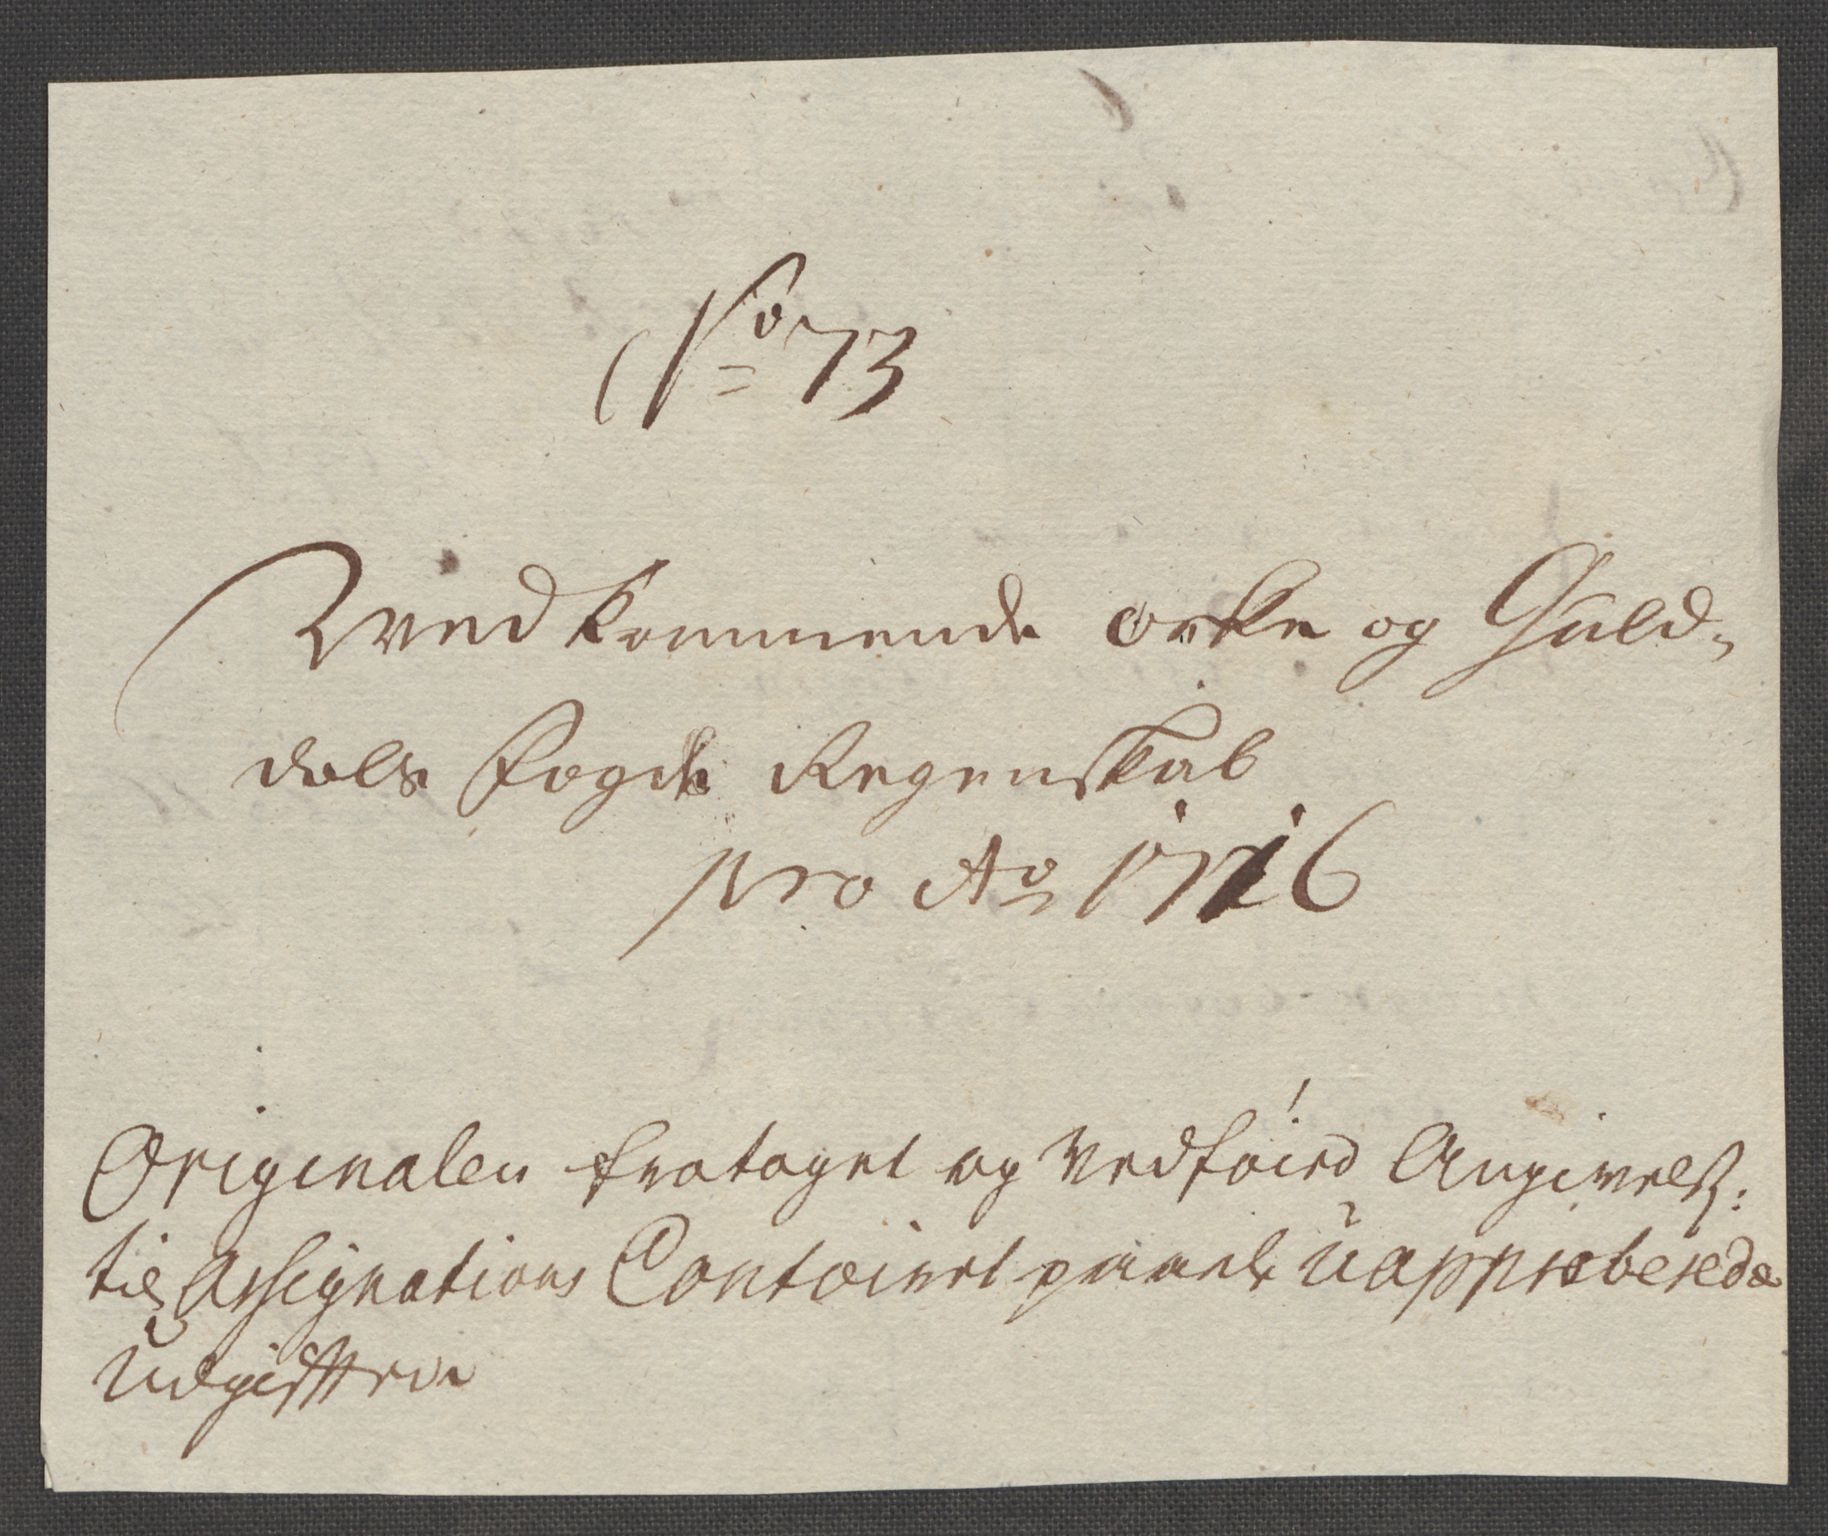 No 73
Wedkommende Orke og Guld-
dals Fogde Regenskab
pro Ao 1716
Originalen fratagel og Vedføied Angivelse:
til Assignations Contoiret paa de Uapproberede
Udgiffter